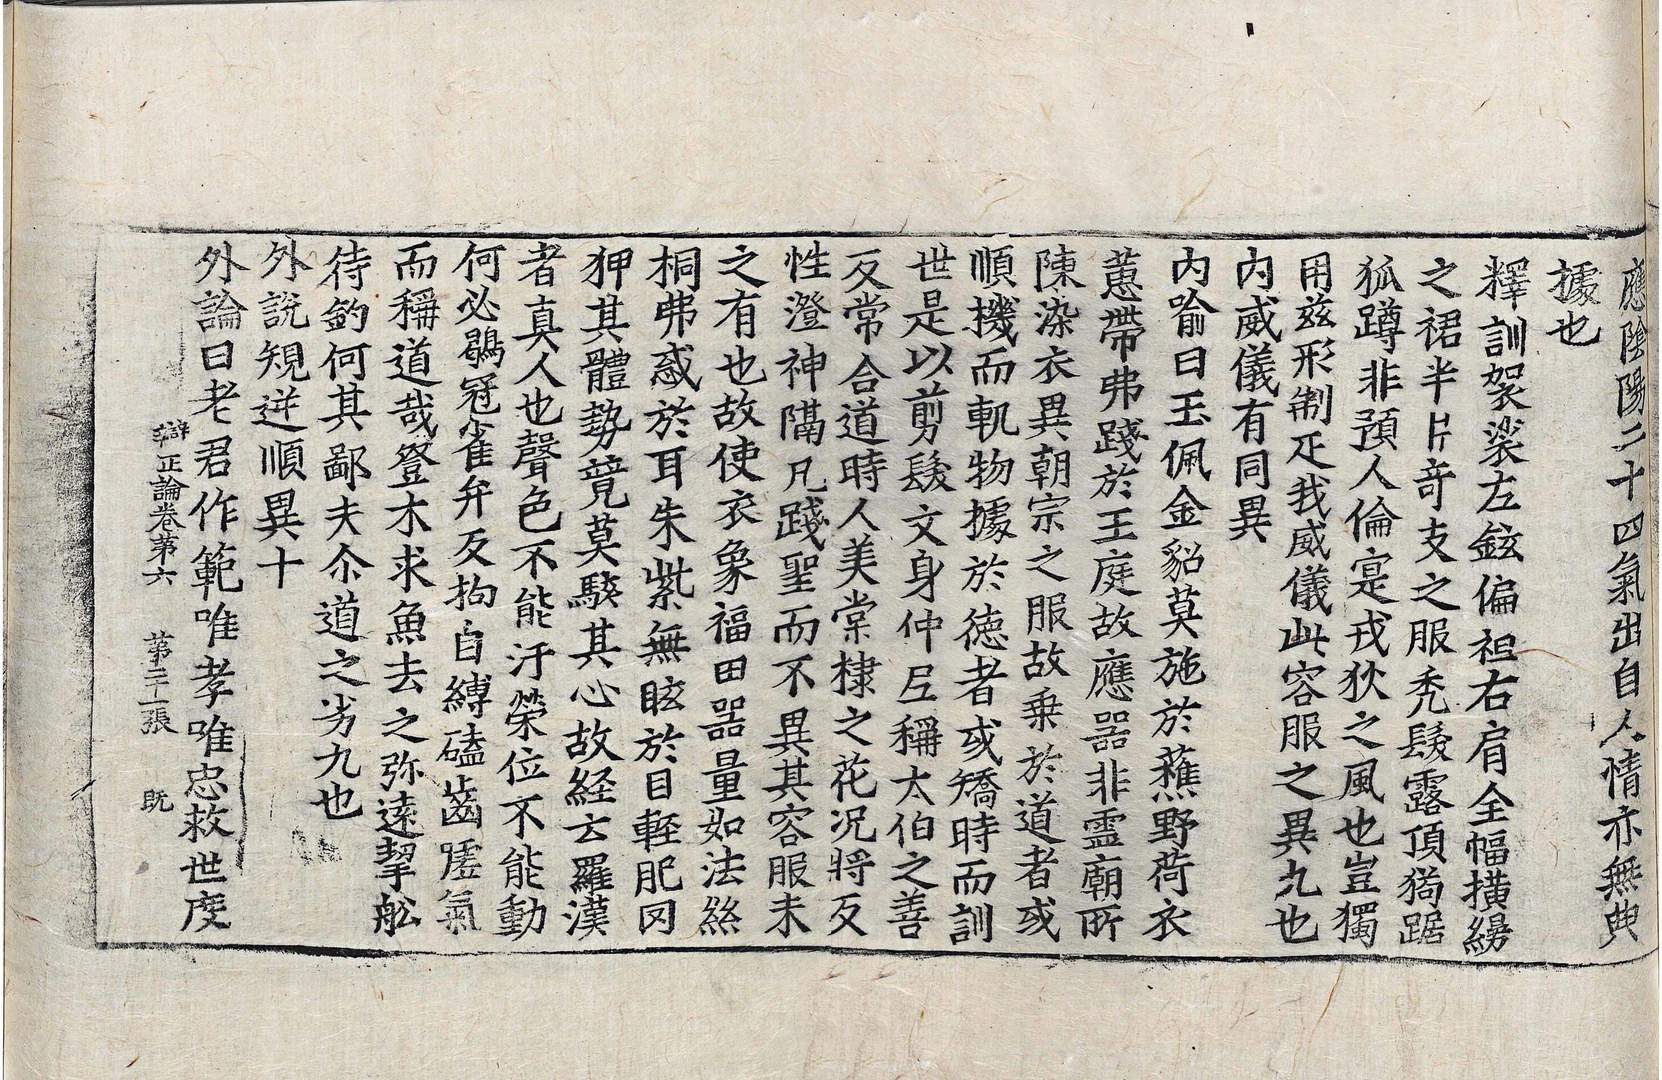 應陰陽二十四氣出自人情亦無典
據也
釋訓袈裟左鉉偏袒右肩全幅撗縵
之裙半片奇支之服禿髮露頂猗踞
狐蹲非預人倫寔戎狄之風也豈獨
用玆形制疋我威儀此容服之異九也
內威儀有同異
內喻曰玉佩金貂莫施於蘸野荷衣
蕙帶弗踐於王庭故應器非靈廟所
陳染衣異朝宗之服故乗於道者或
順機而軌物據於徳者或矯時而訓
世是以剪髮文身仲尼稱太伯之善
反常合道時人美棠棣之花况將反
性澄神隔凡踐聖而不異其容服未
之有也故使衣象福田器量如法絲
桐弗惑於耳朱紫無眩於目輕肥罔
狎其體勢競莫駭其心故経云羅漢
者真人也聲色不能汙榮位不能動
何必鶡冠雀弁反拘自縛磕齒噓氣
而稱道哉登木求魚去之弥遠挈舩
待釣何其鄙夫尒道之劣九也
外說䂓逆順異十
外論曰老君作範唯孝唯忠救世度
辯正論卷第六 第二十一張 旣